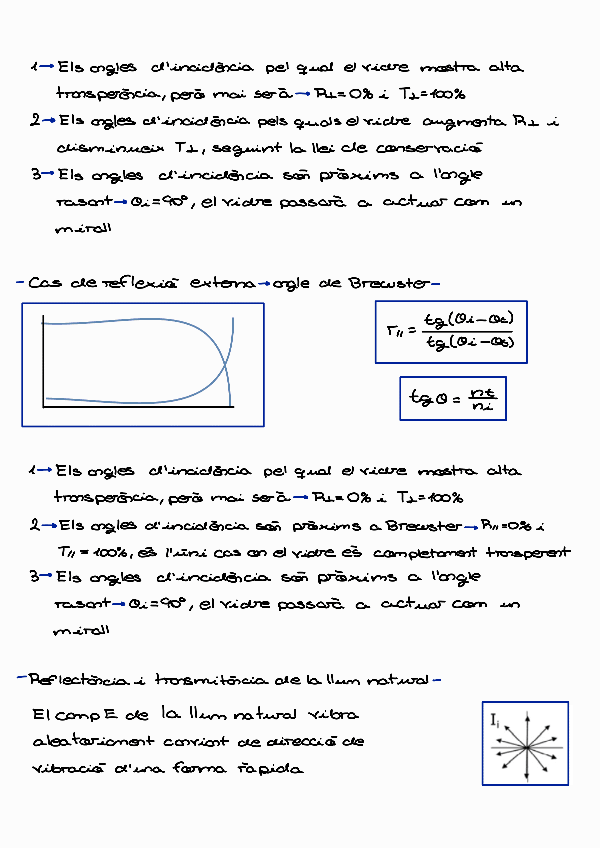 1→ Els angles d'incidència pel qual el vidre mostra alta
transparència, però mai serà → R⊥=0% i T⊥=100%
2→ Els angles d'incidència pels quals el vidre augmenta R⊥ i
disminueix T⊥, seguint la llei de conservació
3→ Els angles d'incidència són pròxims a l'angle
rasant → θi=90º, el vidre passarà a actuar com un
mirall
- Cas de reflexió externa → angle de Brewster -
r// = tg(θi-θt) / tg(θi-θt)
tg θ = nt / ni
1→ Els angles d'incidència pel qual el vidre mostra alta
transparència, però mai serà → R⊥=0% i T⊥=100%
2→ Els angles d'incidència són pròxims a Brewster → R//=0% i
T// = 100%, és l'úni cas on el vidre és completament transparent
3→ Els angles d'incidència són pròxims a l'angle
rasant → θi=90º, el vidre passarà a actuar com un
mirall
- Reflectància i trasmitància de la llum natural -
El camp E de la llum natural vibra
aleatoriament canviant de direcció de
vibració d'una forma ràpida
Ii